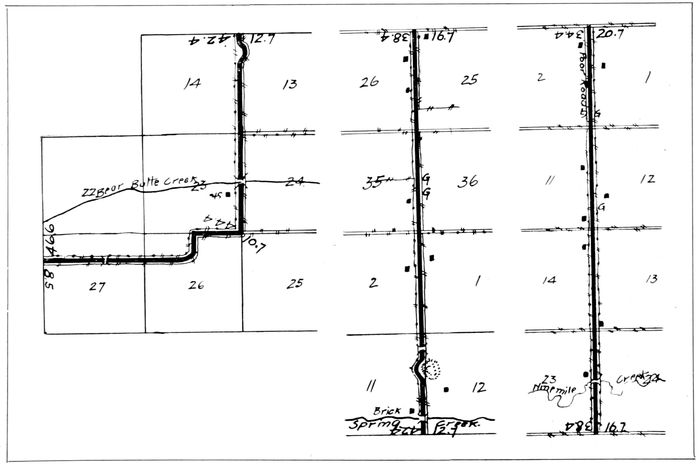 42.4 12.7
14 13
22 Bear Butte Creek 23 24
44.4
10.7
49.6
58
27 26 25
38.4 16.7
26 25
35 G 36
G
2 1
11 12
Brick
Spring Creek
42.4 12.7
34.4 20.7
2 Poor Road 1
G
11 12
G
14 13
23 Ninemile Creek 24
38.4 16.7